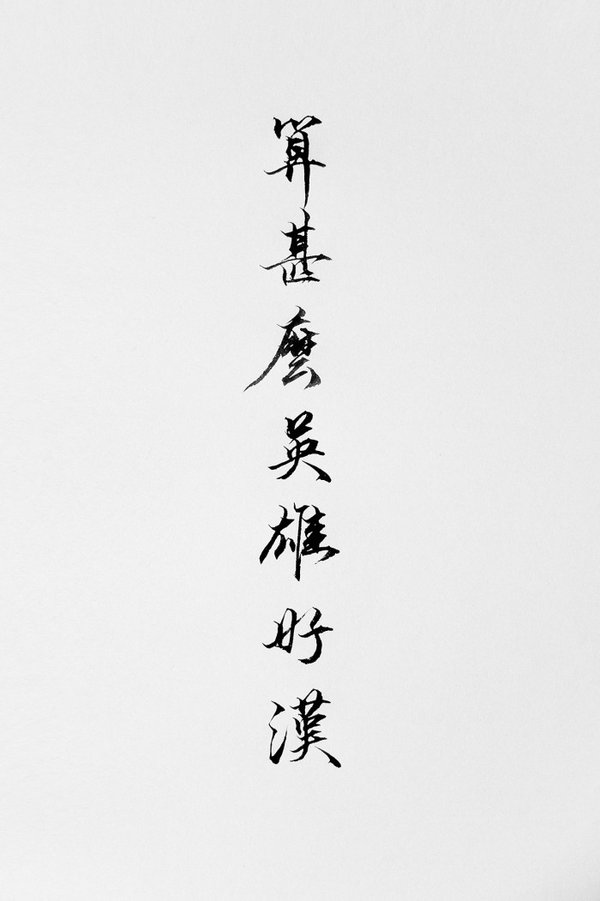 算甚麼英雄好漢